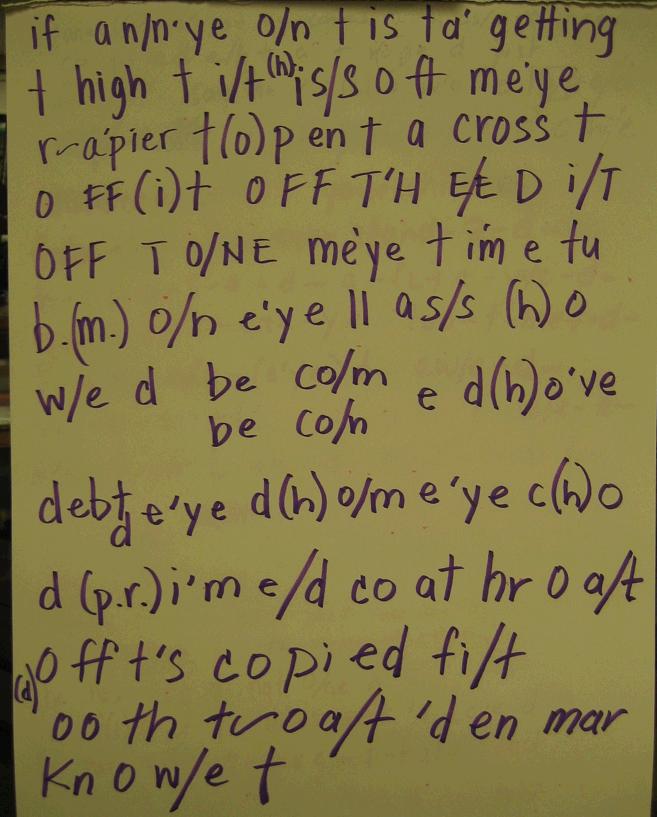 if an/n'ye o/n t is ta' getting
t high t i/t(h)is/s o ft me'ye
r~a'pier t(o)p en t a cross t
o FF(i)t OFF T'H E/E D i/T
OFF T O/NE me'ye t im e tu
b.(m.) o/n e'ye ll as/s (h) o
w/e d be co/m e d(h)o've
be co/n
debt e'ye d(h) o/m e'ye c(h)o
d
d (p.r.) i'm e/d co at hr o a/t
(d) o ff t's copi ed fi/t
oo th tr o a/t 'd en mar
Kn o w/e t